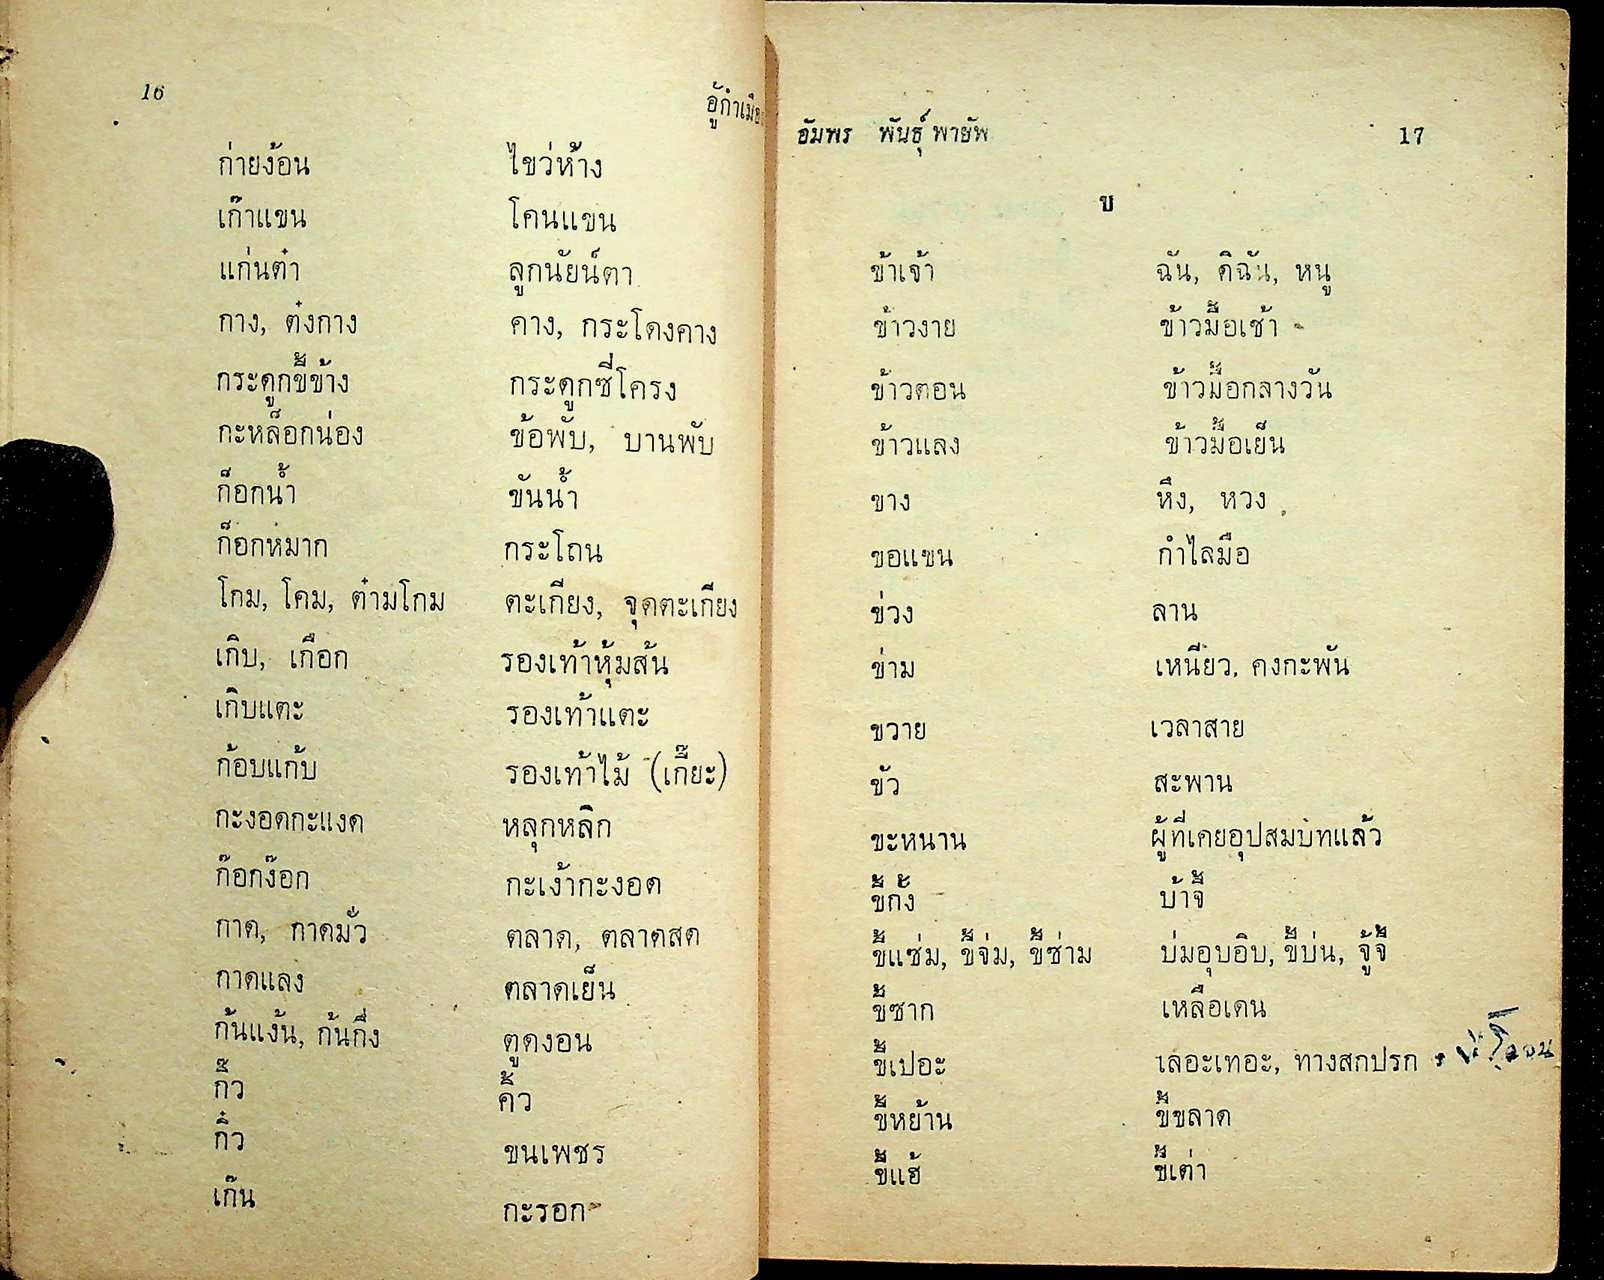 16 อู้กำเมือ
ก่ายง้อน ไขว่ห้าง
เก๊าแขน โคนแขน
แก่นต๋า ลูกนัยน์ตา
กาง, ต๋งกาง คาง, กระโดงคาง
กระดูกขี้ข้าง กระดูกซี่โครง
กะหล็อกน่อง ข้อพับ, บานพับ
ก็อกน้ำ ขันน้ำ
ก็อกหมาก กระโถน
โกม, โคม, ต๋ามโกม ตะเกียง, จุดตะเกียง
เกิบ, เกือก รองเท้าหุ้มส้น
เกิบแตะ รองเท้าแตะ
ก้อบแก้บ รองเท้าไม้ (เกี๊ยะ)
กะงอดกะแงด หลุกหลิก
ก๊อกง๊อก กะเง้ากะงอด
กาด, กาดมั่ว ตลาด, ตลาดสด
กาดแลง ตลาดเย็น
ก้นแง้น, ก้นกึ่ง ตูดงอน
กิ๊ว คิ้ว
กิ๋ว ขนเพชร
เก๊น กะรอก
อัมพร พันธุ์ พายัพ 17
ข
ข้าเจ้า ฉัน, ดิฉัน, หนู
ข้าวงาย ข้าวมื้อเช้า
ข้าวตอน ข้าวมื้อกลางวัน
ข้าวแลง ข้าวมื้อเย็น
ขาง หึง, หวง
ขอแขน กำไลมือ
ข่วง ลาน
ข่าม เหนียว, คงกะพัน
ขวาย เวลาสาย
ขัว สะพาน
ขะหนาน ผู้ที่เคยอุปสมบทแล้ว
ขี้กั้ง บ้าจี้
ขี้แซ่ม, ขี้จ่ม, ขี้ซ่าม บ่มอุบอิบ, ขี้บ่น, จู้จี้
ขี้ซาก เหลือเดน
ขี้เปอะ เลอะเทอะ, ทางสกปรก
ขี้หย้าน ขี้ขลาด
ขี้แฮ้ ขี้เต่า